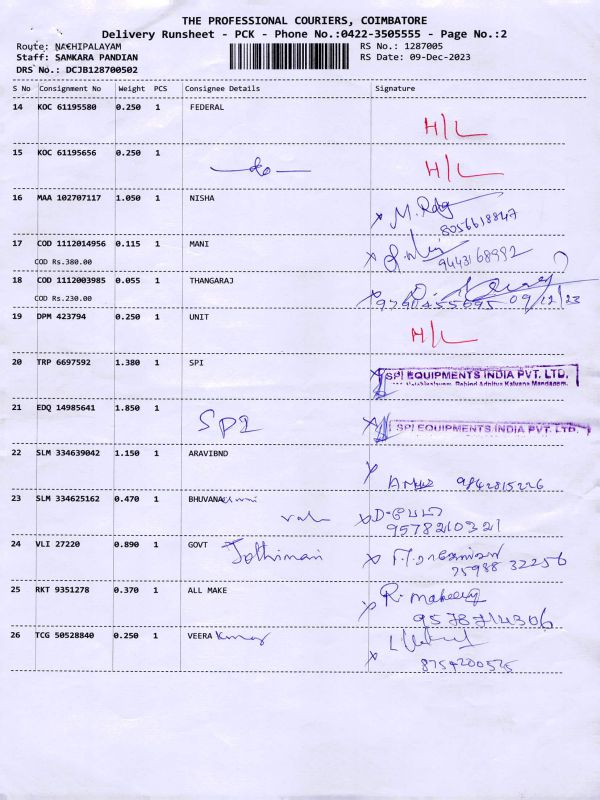 THE PROFESSIONAL COURIERS, COIMBATORE
Delivery Runsheet - PCK - Phone No.:0422-3505555 - Page No.:2
Route: NACHIPALAYAM RS No.: 1287005
Staff: SANKARA PANDIAN RS Date: 09-Dec-2023
DRS No.: DCJB128700502
S No Consignment No Weight PCS Consignee Details Signature
14 KOC 61195580 0.250 1 FEDERAL H/L
15 KOC 61195656 0.250 1 —do— H/L
16 MAA 102707117 1.050 1 NISHA
8056618847
17 COD 1112014956 0.115 1 MANI
COD Rs.380.00 9443168992
18 COD 1112003985 0.055 1 THANGARAJ
COD Rs.230.00 9790455095 09/12/23
19 DPM 423794 0.250 1 UNIT H/L
20 TRP 6697592 1.380 1 SPI SPI EQUIPMENTS INDIA PVT. LTD.
Behind Adhitya Kalyana Mandapam.
21 EDQ 14985641 1.850 1 SPI SPI EQUIPMENTS INDIA PVT. LTD.
22 SLM 334639042 1.150 1 ARAVIBND
9842815226
23 SLM 334625162 0.470 1 BHUVANA
9578210321
24 VLI 27220 0.890 1 GOVT Jothimani
75988 32256
25 RKT 9351278 0.370 1 ALL MAKE
9578714306
26 TCG 50528840 0.250 1 VEERA Kumar
8754200525